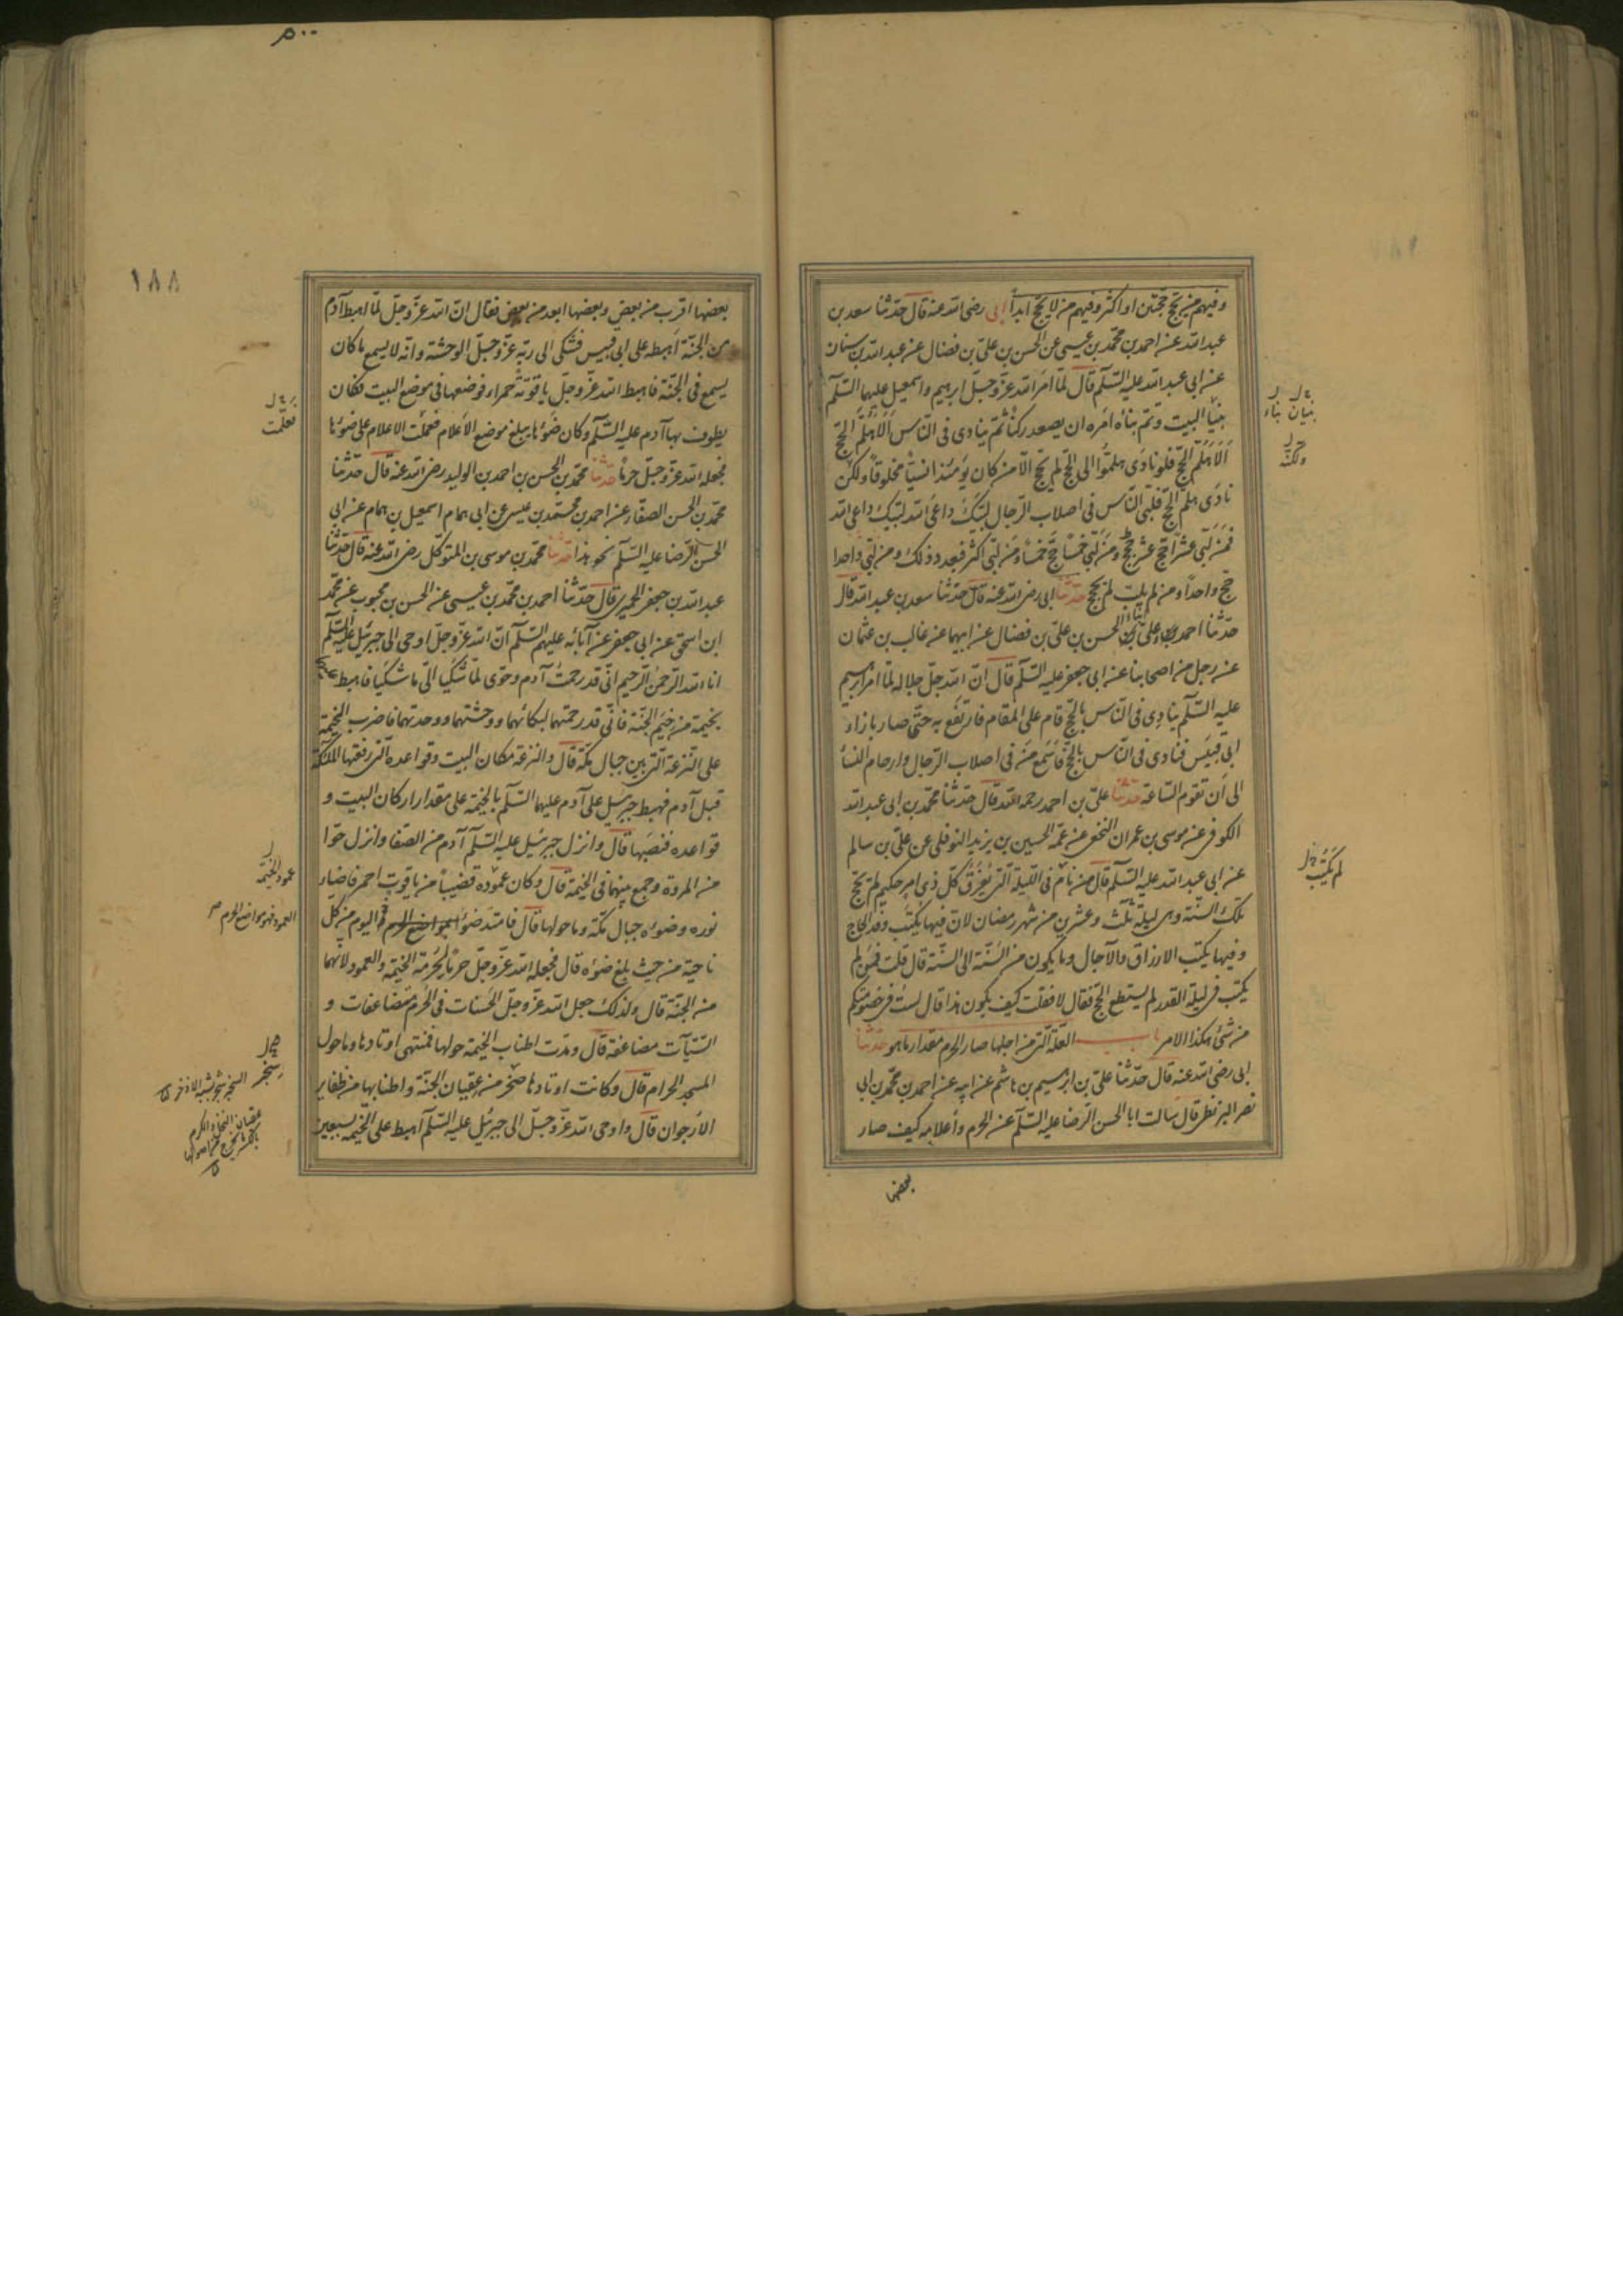 وفيهم من يحج حجتين او اكثر وفيهم من لا يحج ابداً ابى رضى الله عنه قال حدثنا سعد بن
عبد الله عن احمد بن محمد بن عيسى عن الحسن بن على بن فضال عن عبد الله بن سنان
عن ابى عبد الله عليه السلم قال لما امر الله عز وجل ابرهيم واسمعيل عليهما السلم
ببنيا البيت وتم بناه امره ان يصعد ركنا ثم ينادى فى الناس الا هلم الحج
الا هلم الحج فلو نادى هلموا الى الحج لم يحج الا من كان يومئذ انسيا مخلوقا ولكن
نادى هلم الحج فلبى الناس فى اصلاب الرجال لبيك داعى الله لبيك داعى الله
فمن لبى عشرا حج عشر حجج ومن لبى خمسا حج خمسا ومن لبى اكثر فبعدد ذلك ومن لبى واحدا
حج واحدا ومن لم يلب لم يحج حدثنا ابى رضى الله عنه قال حدثنا سعد بن عبد الله قال
حدثنا احمد وعلى ابنا الحسن بن على بن فضال عن ابيهما عن غالب بن عثمان
عن رجل من اصحابنا عن ابى جعفر عليه السلم قال ان الله جل جلاله لما امر ابرهيم
عليه السلم ينادى فى الناس بالحج قام على المقام فارتفع به حتى صار بازاء
ابى قبيس فنادى فى الناس بالحج فاسمع من فى اصلاب الرجال وارحام النسا
الى ان تقوم الساعة حدثنا على بن احمد رحمه الله قال حدثنا محمد بن ابى عبد الله
الكوفى عن موسى بن عمران النخعى عن عمه الحسين بن يزيد النوفلى عن على بن سالم
عن ابى عبد الله عليه السلم قال من نام فى الليلة التى يفرق كل ذى امر حكيم لم يحج
تلك السنة وهى ليلة ثلث وعشرين من شهر رمضان لان فيها يكتب وفد الحاج
وفيها يكتب الارزاق والآجال وما يكون من السنة الى السنة قال قلت فمن لم
يكتب فى ليلة القدر لم يستطع الحج فقال لا فقلت كيف يكون هذا قال لست فى خصومتكم
من شئ هكذا الامر باب العلة التى من اجلها صار الحرم مقدار ما هو حدثنا
ابى رضى الله عنه قال حدثنا على بن ابرهيم بن هاشم عن ابيه عن احمد بن محمد بن ابى
نصر البزنطى قال سالت ابا الحسن الرضا عليه السلم عن الحرم واعلامه كيف صار
بعضها
بنيان بناء
ولكنه
لم يكتب
٥٠٠
١٨٨
بعضها اقرب من بعض وبعضها ابعد من بعض فقال ان الله عز وجل لما اهبط آدم
من الجنة اهبطه على ابى قبيس فشكى الى ربه عز وجل الوحشة وانه لا يسمع ما كان
يسمع فى الجنة فاهبط الله عز وجل ياقوتة حمراء فوضعها فى موضع البيت فكان
يطوف بها آدم عليه السلم وكان ضوئها يبلغ موضع الاعلام فعملت الاعلام على ضوئها
فجعله الله عز وجل حرما حدثنا محمد بن الحسن بن احمد بن الوليد رضى الله عنه قال حدثنا
محمد بن الحسن الصفار عن احمد بن محمد بن عيسى عن ابى همام اسمعيل بن همام عن ابى
الحسن الرضا عليه السلم نحو هذا حدثنا محمد بن موسى بن المتوكل رضى الله عنه قال حدثنا
عبد الله بن جعفر الحميرى قال حدثنا احمد بن محمد بن عيسى عن الحسن بن محبوب عن محمد
ابن اسحق عن ابى جعفر عن آبائه عليهم السلم ان الله عز وجل اوحى الى جبرئيل عليه السلم
انا الله الرحمن الرحيم انى قد رحمت آدم وحوى لما شكيا الى ما شكيا فاهبط عليهما
بخيمة من خيم الجنة فانى قد رحمتهما لبكائهما ووحشتهما ووحدتهما فاضرب الخيمة
على النزعة التى بين جبال مكة قال والنزعة مكان البيت وقواعده التى رفعها الملئكة
قبل آدم فهبط جبرئيل على آدم عليهما السلم بالخيمة على مقدار اركان البيت و
قواعده فنصبها قال وانزل جبرئيل عليه السلم آدم من الصفا وانزل حوا
من المروة وجمع بينهما فى الخيمة قال وكان عموده قضيبا من ياقوت احمر فاضاء
نوره وضوئه جبال مكة وما حولها قال فامتد ضوء اليوم من كل
ناحية من حيث بلغ ضوئه قال فجعله الله عز وجل حرما لحرمة الخيمة والعمود لانهما
من الجنة قال ولذلك جعل الله عز وجل الحسنات فى الحرم مضاعفات و
السيآت مضاعفة قال ومدت اطناب الخيمة حولها فمنتهى اوتادها وما حول
المسجد الحرام قال وكانت اوتادها صخر من عقيان الجنة واطنابها من ظفاير
الارجوان قال واوحى الله عز وجل الى جبرئيل عليه السلم اهبط على الخيمة بسبعين
فعلمت
عمود الخيمة
العمود فهو مواضع الحرم